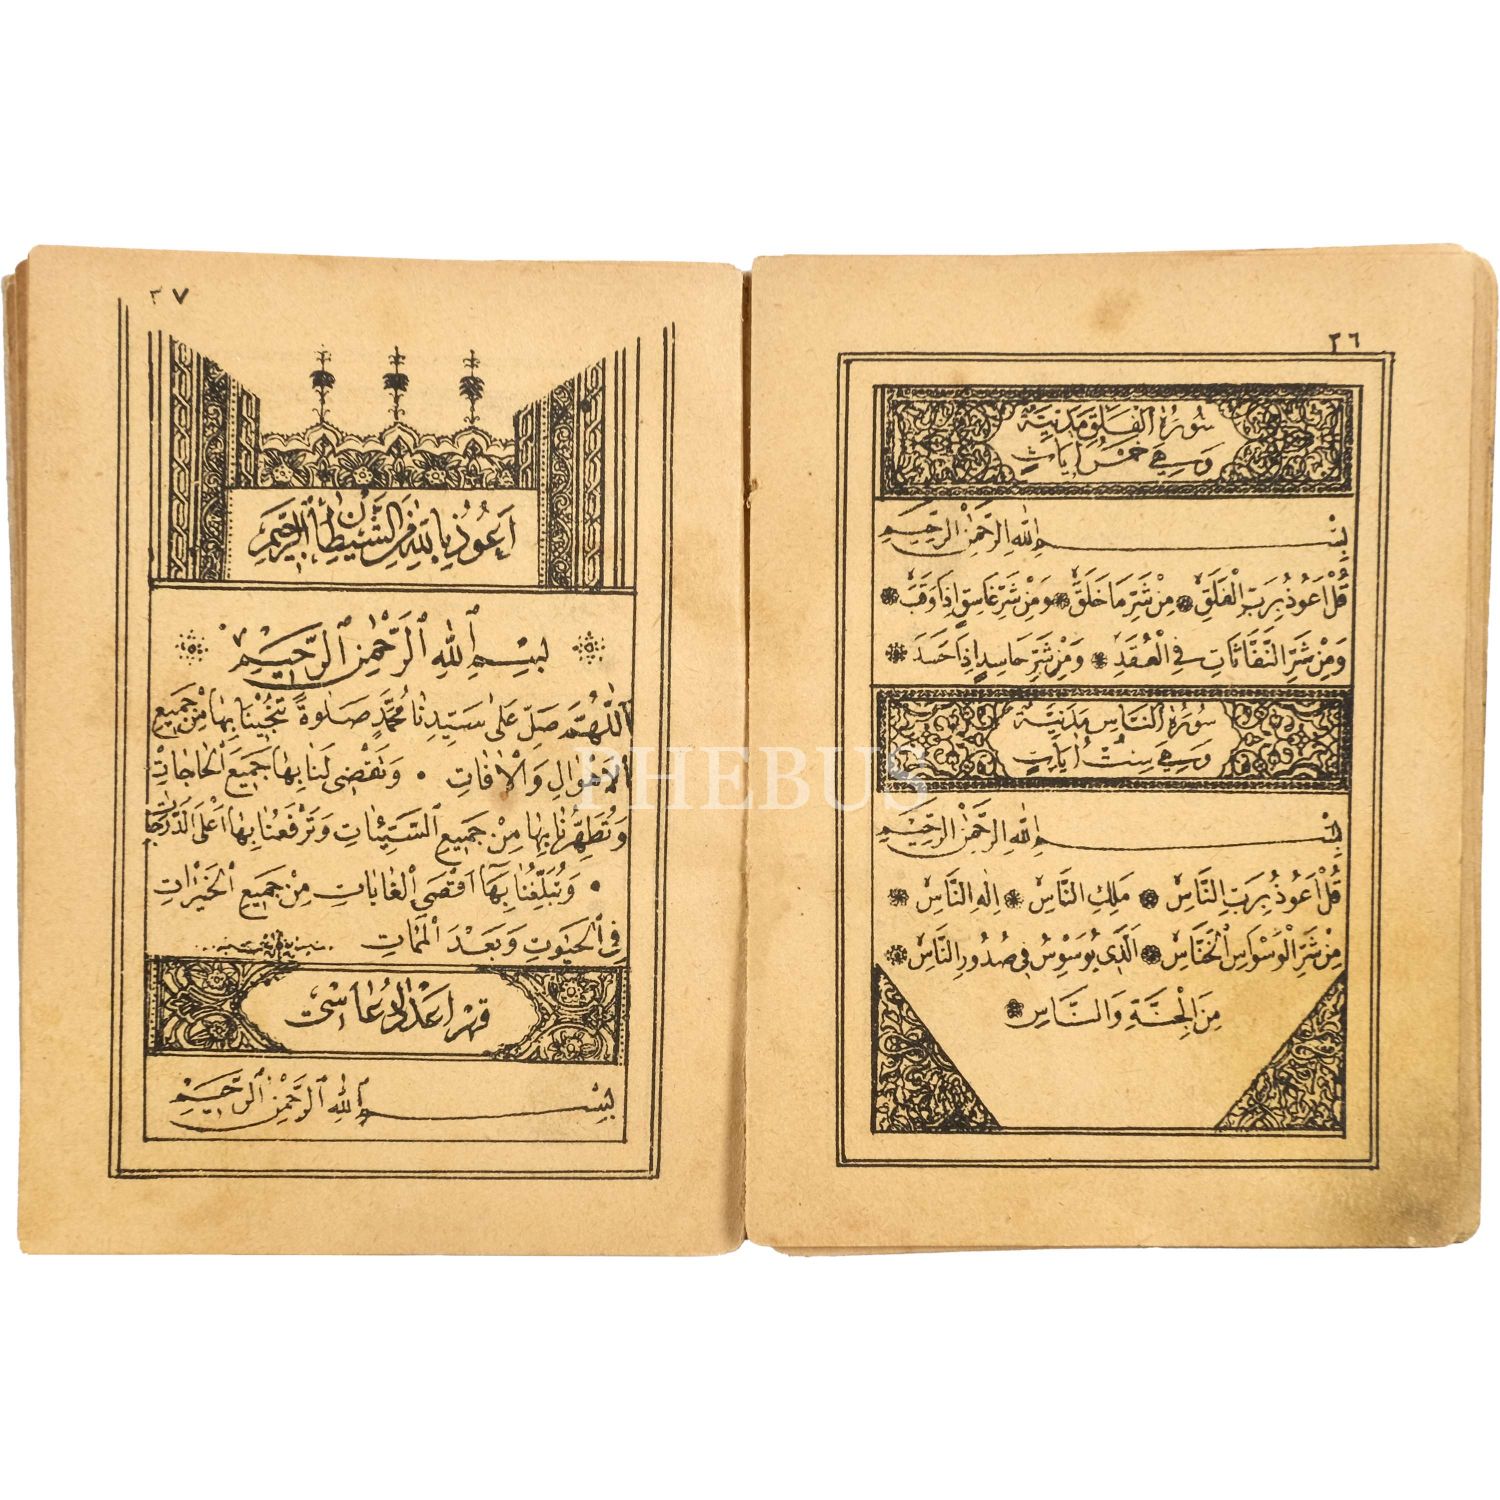 ٣٦
سُورَةُ الْفَلَقِ مَدَنِيَّةٌ
وَهِيَ خَمْسُ اٰيَاتٍ
بِسْمِ اللّٰهِ الرَّحْمٰنِ الرَّحِيمِ
قُلْ اَعُوذُ بِرَبِّ الْفَلَقِ مِنْ شَرِّ مَا خَلَقَ وَمِنْ شَرِّ غَاسِقٍ اِذَا وَقَبَ
وَمِنْ شَرِّ النَّفَّاثَاتِ فِي الْعُقَدِ وَمِنْ شَرِّ حَاسِدٍ اِذَا حَسَدَ
سُورَةُ النَّاسِ مَدَنِيَّةٌ
وَهِيَ سِتُّ اٰيَاتٍ
بِسْمِ اللّٰهِ الرَّحْمٰنِ الرَّحِيمِ
قُلْ اَعُوذُ بِرَبِّ النَّاسِ مَلِكِ النَّاسِ اِلٰهِ النَّاسِ
مِنْ شَرِّ الْوَسْوَاسِ الْخَنَّاسِ اَلَّذِي يُوَسْوِسُ فِي صُدُورِ النَّاسِ
مِنَ الْجِنَّةِ وَالنَّاسِ
٣٧
اَعُوذُ بِاللّٰهِ مِنَ الشَّيْطَانِ الرَّجِيمِ
بِسْمِ اللّٰهِ الرَّحْمٰنِ الرَّحِيمِ
اَللّٰهُمَّ صَلِّ عَلٰى سَيِّدِنَا مُحَمَّدٍ صَلٰوةً تُنْجِينَا بِهَا مِنْ جَمِيعِ
الْاَهْوَالِ وَالْاٰفَاتِ • وَتَقْضِي لَنَا بِهَا جَمِيعَ الْحَاجَاتِ
وَتُطَهِّرُنَا بِهَا مِنْ جَمِيعِ السَّيِّئَاتِ وَتَرْفَعُنَا بِهَا اَعْلَى الدَّرَجَاتِ
• وَتُبَلِّغُنَا بِهَا اَقْصَى الْغَايَاتِ مِنْ جَمِيعِ الْخَيْرَاتِ
فِي الْحَيٰوةِ وَبَعْدَ الْمَمَاتِ
قهر اعدا دعاسى
بِسْمِ اللّٰهِ الرَّحْمٰنِ الرَّحِيمِ
PHEBUS